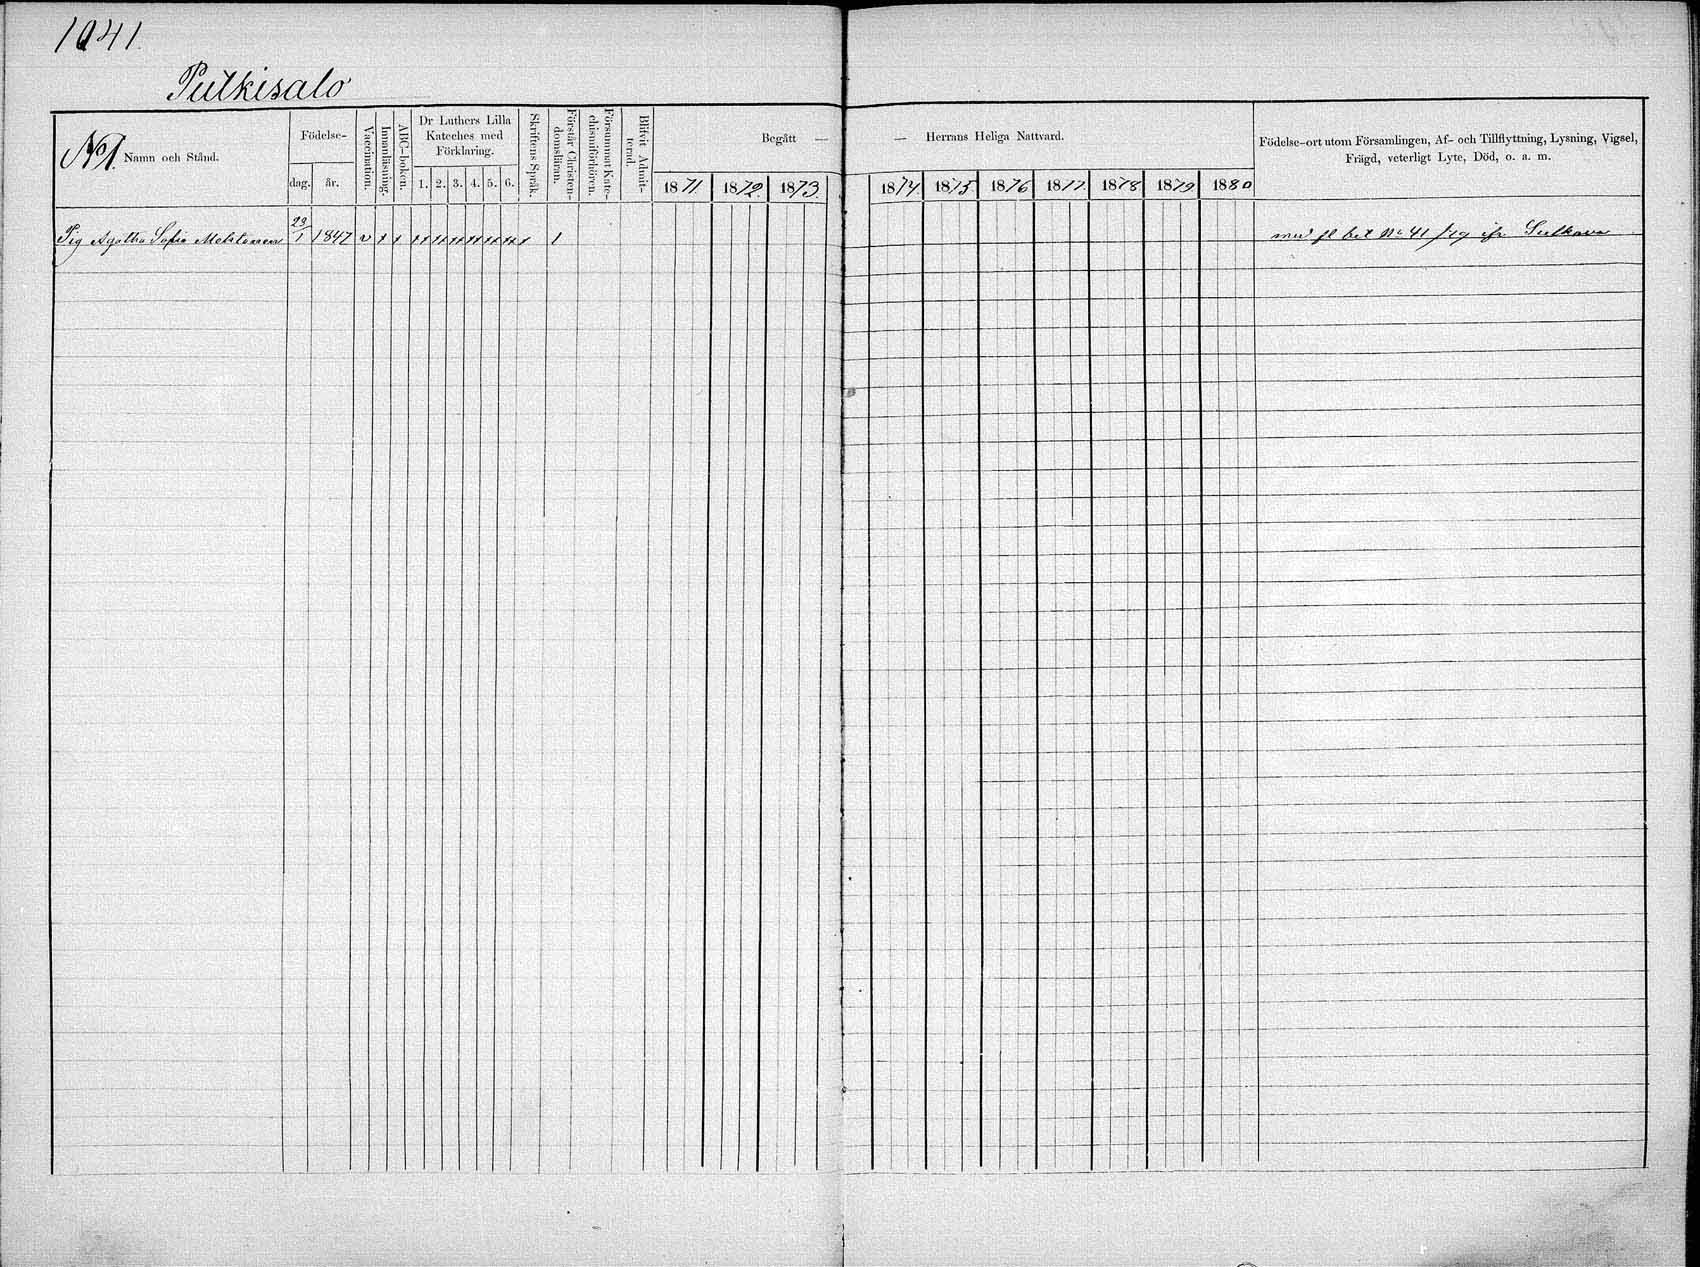 1041.
Putkisalo
No 1.
Namn och Stånd.
Födelse-
dag. år.
Vaccination.
Innanläsning.
ABC-boken.
Dr Luthers Lilla
Kateches med
Förklaring.
1. 2. 3. 4. 5. 6.
Skriftens Språk.
Förstår Christen-
domsläran.
Försummat Kate-
chismiförhören.
Blifvit Admit-
terad.
Begått — — Herrans Heliga Nattvard.
1871 1872. 1873. 1874 1875 1876 1877 1878 1879 1880
Födelse-ort utom Församlingen, Af- och Tillflyttning, Lysning, Vigsel,
Frägd, veterligt Lyte, Död, o. a. m.
Pig Agatha Sofia 23/1 1847 v
med fl bet No 41/79 ifr Sulkava